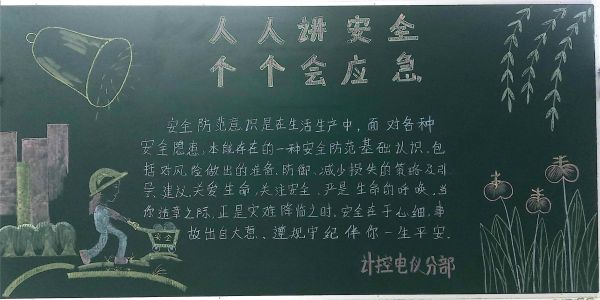 人人讲安全
个个会应急
安全防范意识是在生活生产中,面对各种
安全隐患,本能存在的一种安全防范基础认识,包
括对风险做出的准备、防御、减少损失的策略及引
导建议.关爱生命,关注安全,严是生命的呼唤,当
你违章之际,正是灾难降临之时,安全在于心细,事
故出自大意、遵规守纪伴你一生平安.
计控电仪分部
安全